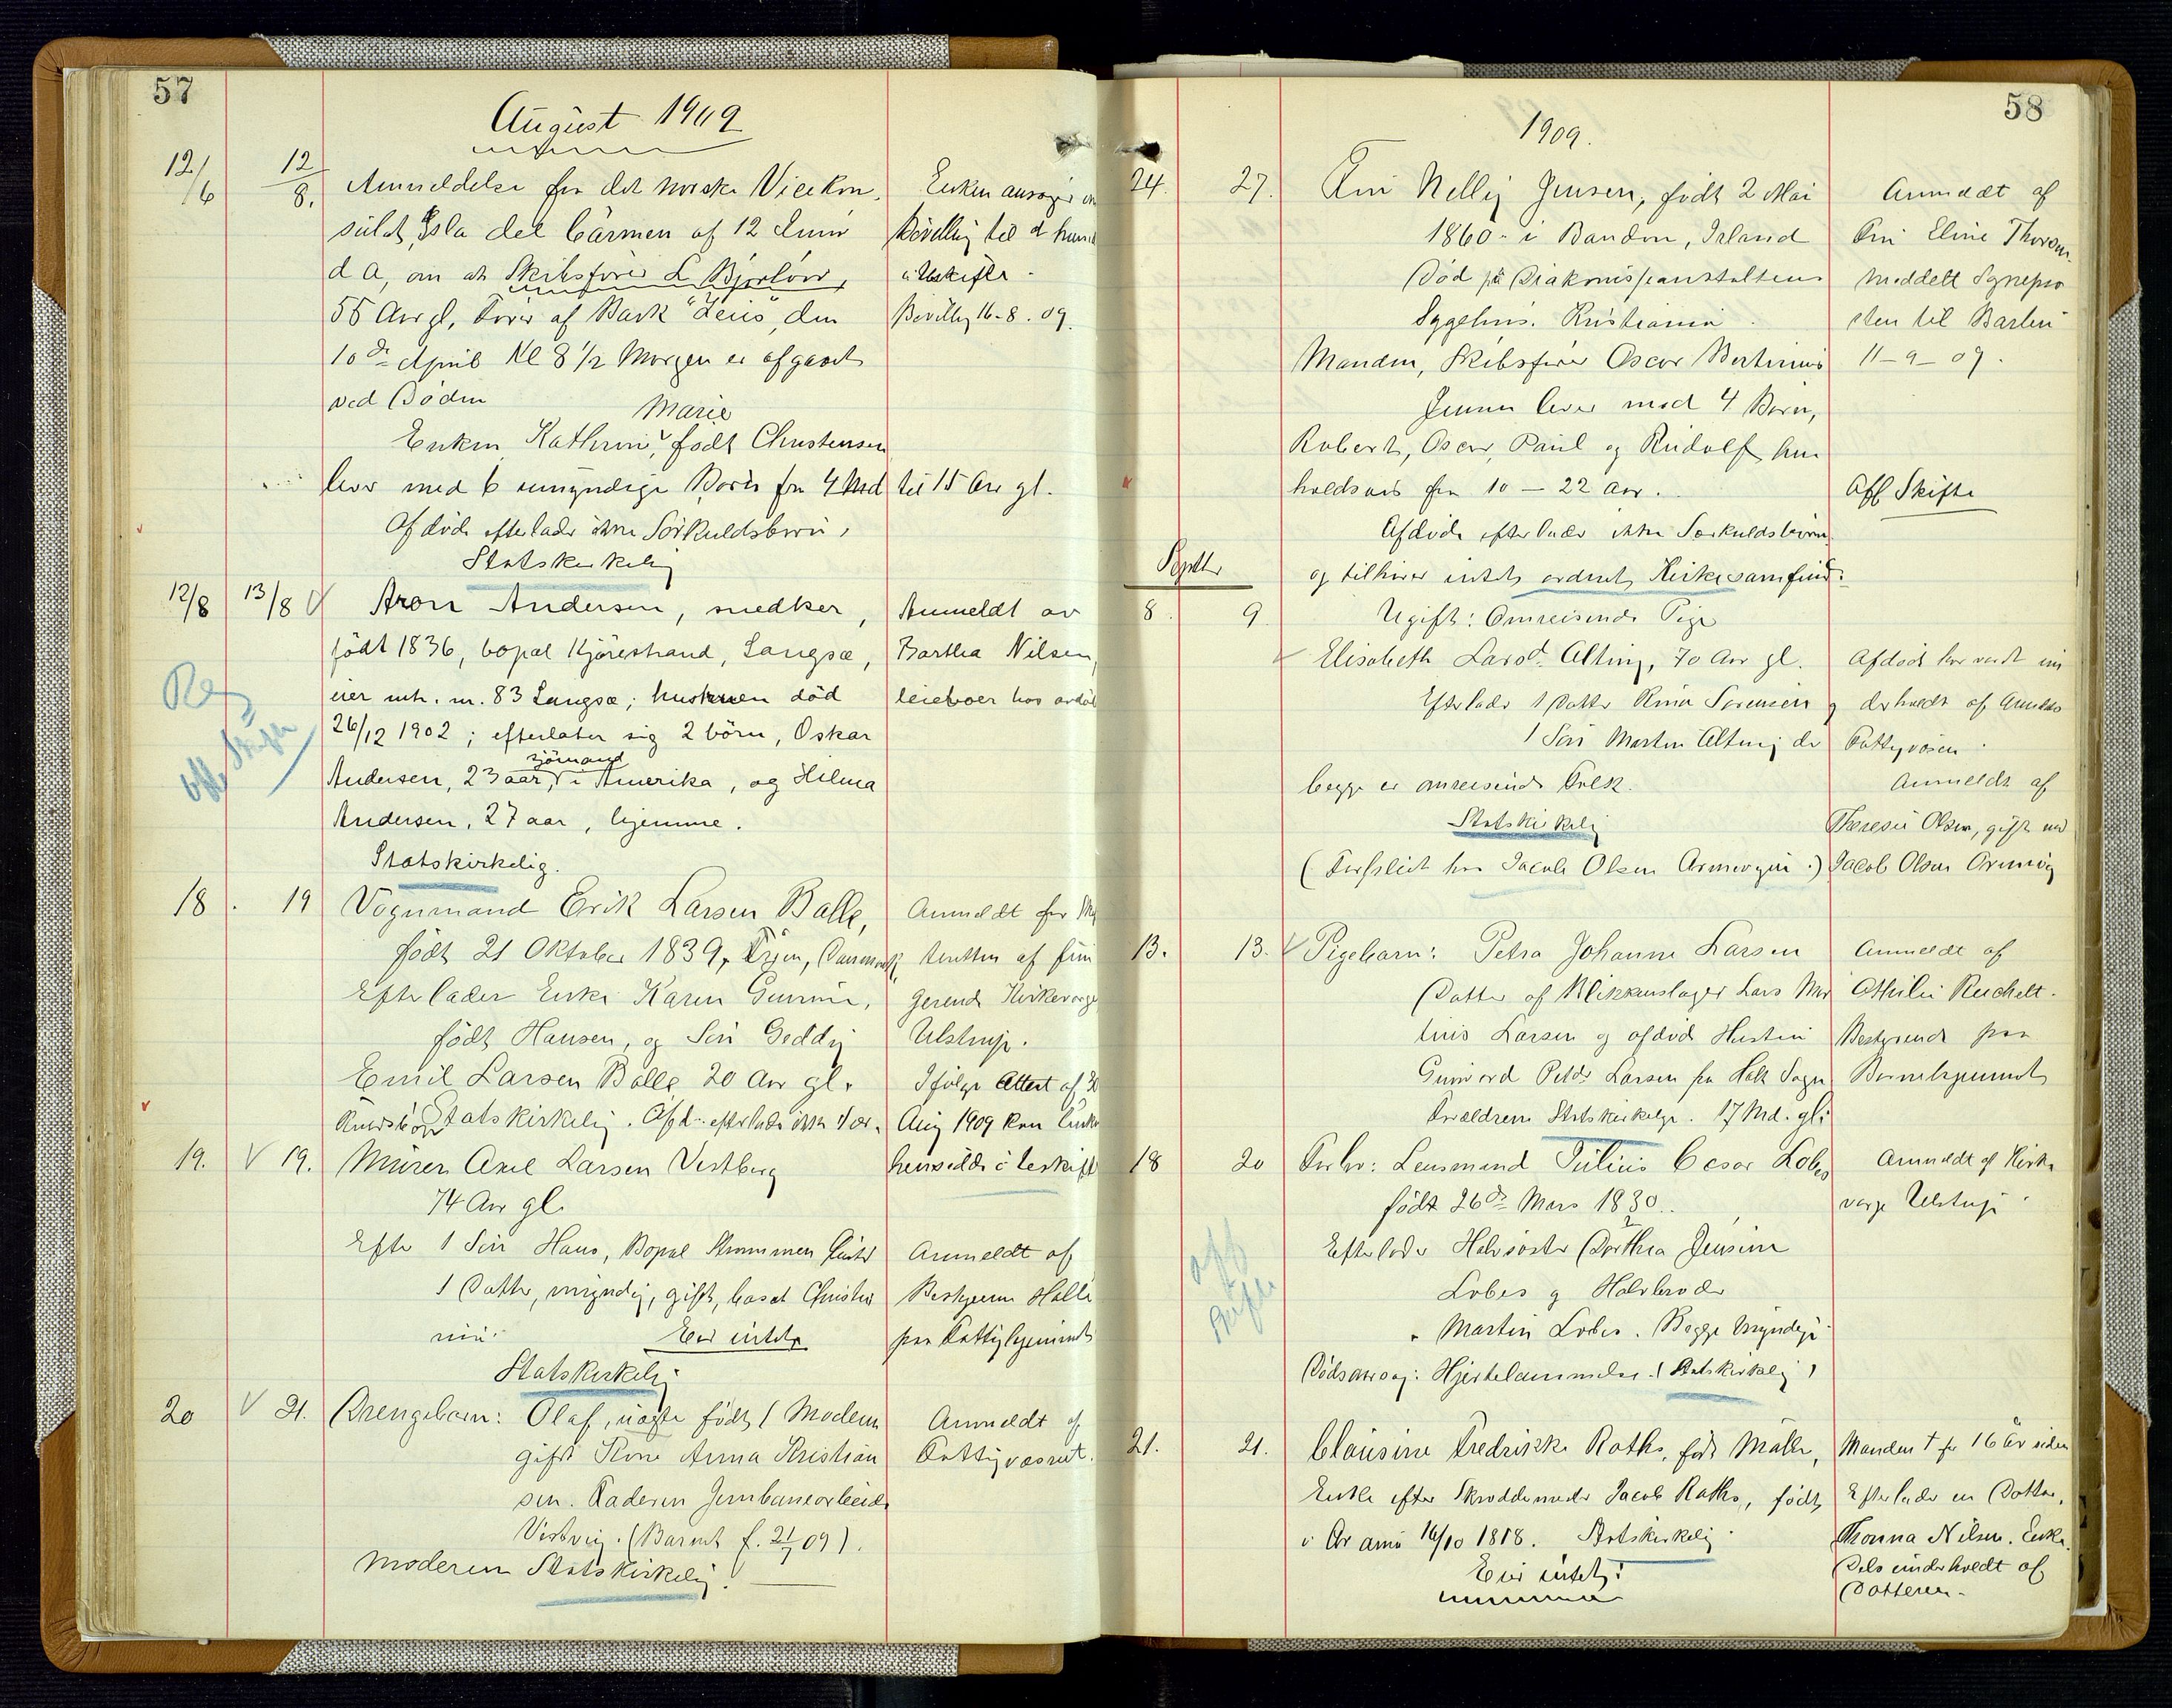 57
August 1909
12/6 12/8. Anmeldelse fra det norske Vicekon-
sulat, Isla del Carmen af 12 Juni
d A, om at Skibsfører L Bjorløv,
55 Aar gl, Fører af Bark "Zeus", den
10de April Kl 8 1/2 Morgen er afgaaet
ved Døden
Marie
Enken Kathrine, født Christensen
lever med 6 umyndige Børn fra 4 Md til 15 Aar gl.
Afdøde efterlader ikke Særkuldsbørn,
Statskirkelig
Enken ansøger om
Bevilling til at hensid
i Uskifte.
Bevillg 16-8.09.
12/8 13/8 V Aron Andersen, snedker,
født 1836, bopæl Kjörestrand, Langsæ,
eier mtr. nr. 83 Langsæ; hustruen död
26/12 1902; efterlater sig 2 börn, Oskar
sjömand
Andersen, 23 aar, i Amerika, og Hilma
Andersen, 27 aar, hjemme.
Statskirkelig.
Anmeldt av
Barthea Nilsen,
leieboer hos avdøde
Reg
Off. Skifte
18. 19 Vognmand Erik Larsen Balle,
født 21 Oktober 1839, Fyen, Danmark
Efterlader Enke Karen Gunine,
født Hansen, og Søn Geddy
Emil Larsen Balle 20 Aar gl.
Statskirkelig. Afd. efterlader ikke Sær-
kuldsbørn
Anmeldt for
af fun
gerende Kirkeverge
Ulstrup.
Ifølge Attest af
Aug 1909 kan Enken
hensidde i Uskifte
19. V 19. Murer Axel Larsen Vestberg
74 Aar gl.
Efter 1 Søn Hans, Bopæl Strømmen
1 Datter, myndig, gift, bosat Christia
nia.
Eier intet
Statskirkelig
Anmeldt af
Bestyreren Halle
paa Fattighjemmet
20 V 21. Drengebarn: Olaf, uægte født (Moderen
gift Kone Anna Kristian
sen. Faderen Jernbanearbeider
Vestvig. (Barnet f. 21/7 09).
Moderen Statskirkelig.
Anmeldt af
Fattigvæsenet.
58
1909.
24. 27. Fru Nelly Jensen, født 2 Mai
1860 i Bandon, Irland
Død på Diakonisseanstaltens
Sygehus. Kristiania
Manden, Skibsfører Oscar Bertinius
Jensen lever med 4 Børn,
Robert, Oscar, Paul og Rudolf hen
holdsvis fra 10 - 22 Aar.
Afdøde efterlader ikke Særkuldsbørn
og tilhører intet ordnet Kirkesamfund.
Anmeldt af
Fru Eline Thorsen.
Meddelt Sogneprs
sten til Barbu
11-9-09.
Off Skifte
Septbr
8. 9. Ugift: Omreisende Pige
Elisabeth Larsd. Alting, 70 Aar gl.
Efterlader 1 Datter Rina Sørensen og
1 Søn Martin Alting der
begge er omreisende Folk.
Statskirkelig
(Forpleiet hos Jacob Olsen )
Afdøde har været un
derholdt af Arendals
Fattigvæsen.
Anmeldt af
Therese Olsen, gift med
Jacob Olsen
13. 13. V Pigebarn: Petra Johanne Larsen
Datter af Blikkenslager Lars Mar
tinius Larsen og afdød Hustru
Gunvord Petd. Larsen fra Holt Sogn
Forældrene Statskirkelige. 17 Md. gl.
Anmeldt af
Othilie Reichelt.
Bestyrende paa
Børnehjemmet
18 20 Forhv: Lensmand Julius Cesar Lobes
født 26de Mars 1830.
Efterlader Halvsøster Dorthea Jensine
Lobes og Halvbroder
Martin Lobes. Begge Myndige.
Dødsaarsag: Hjertelammelse. (Statskirkelig)
Anmeldt af Kirke
verge Ulstrup.
Off
Skifte
21. 21. Clausine Fredrikke Raths, født Møller,
Enke efter Skreddermester Jacob Raths, født
i Ar amt 16/10 1818. Statskirkelig
Eier intet!
Manden † for 16 År siden
Efterlader en Datter,
Thonna Nilsen, Enke.
Dels underholdt af
Datteren.